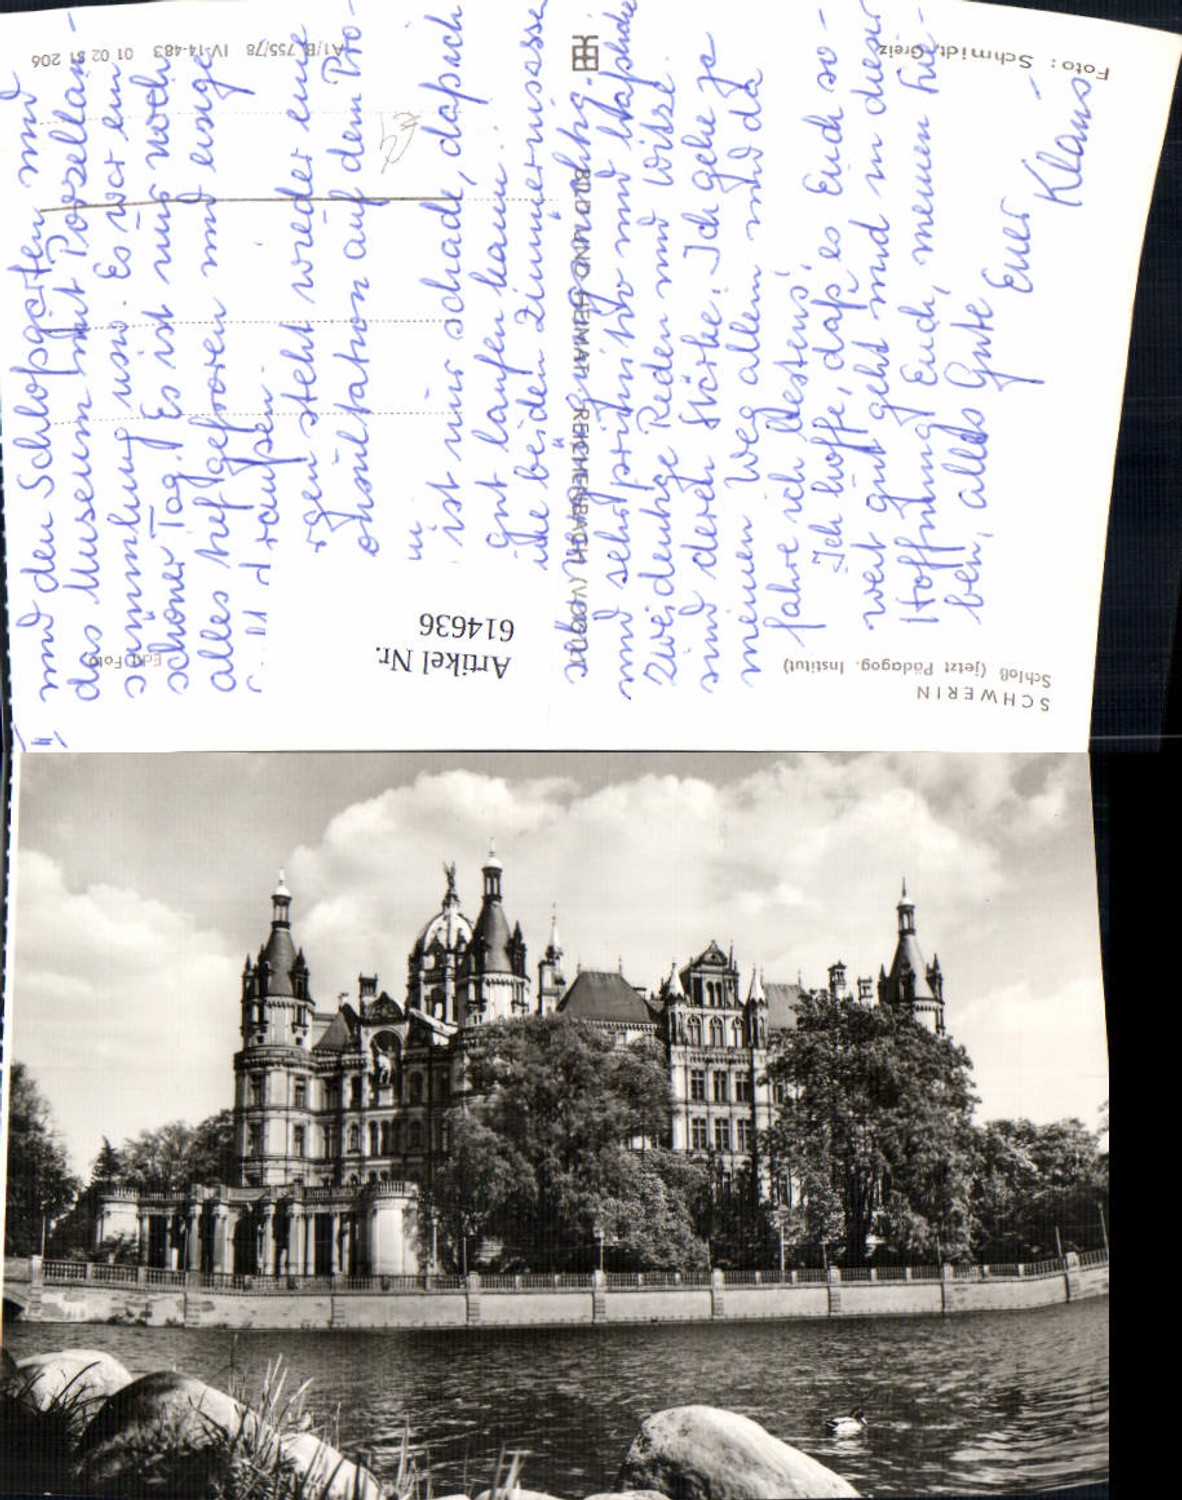 SCHWERIN
Schloß (jetzt Pädagog. Institut)
Foto: Schmidt, Greiz
BILD UND HEIMAT REICHENBACH (VOGTL
A1/B 755/78 IV-14-483 01 02 81 206
Echt Foto
Artikel Nr.
614636
und den Schloßgarten und
das Museum mit Porzellan-
sammlung usw. Es war ein
schöner Tag. Es ist nur noch
alles tief gefroren und eisig
draußen.
steht wieder eine
onsultation auf dem Pro-
ist nur schade, daß ich
gut laufen kann.
die beiden Zimmerinsassen
und sehr primitiv und läppisch
Zweideutige Reden und Witze
sind deren Stärke. Ich gehe ja
meinen Weg allein und da
fahre ich bestens!
Ich hoffe, daß es Euch so-
weit gut geht und in dieser
Hoffnung Euch, meinen Lie-
ben, alles Gute
Euer
Klaus